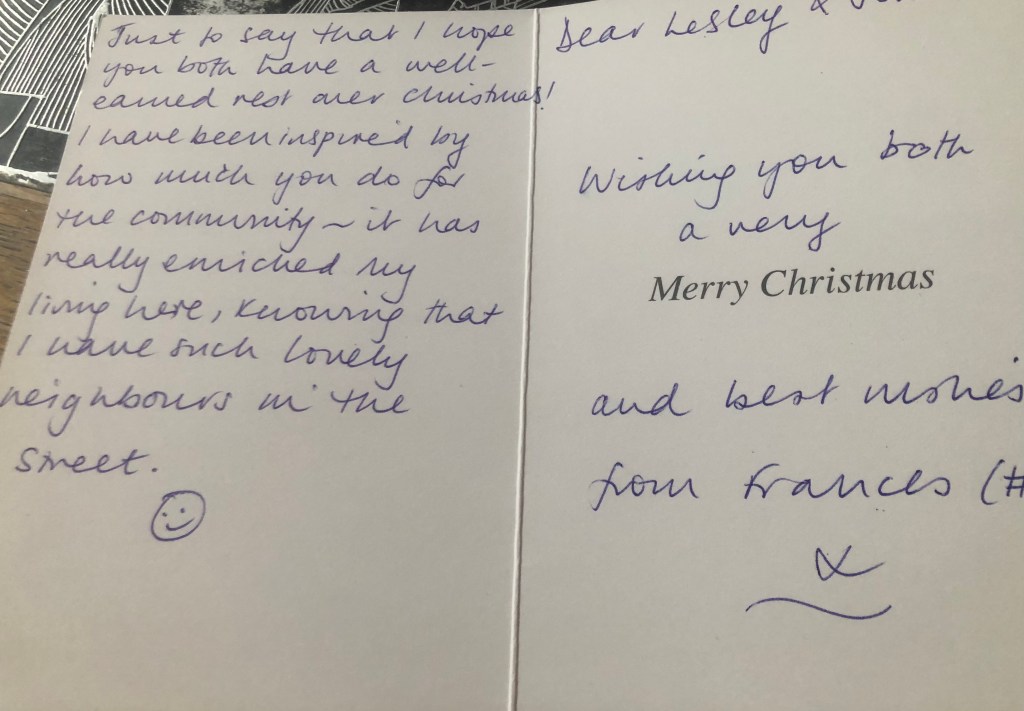 Just to say that I hope
you both have a well-
earned rest over christmas!
I have been inspired by
how much you do for
the community ~ it has
really enriched my
living here, knowing that
I have such lovely
neighbours in the
street.
Dear Lesley &
Wishing you both
a very
Merry Christmas
and best wishes
from Frances (#
x